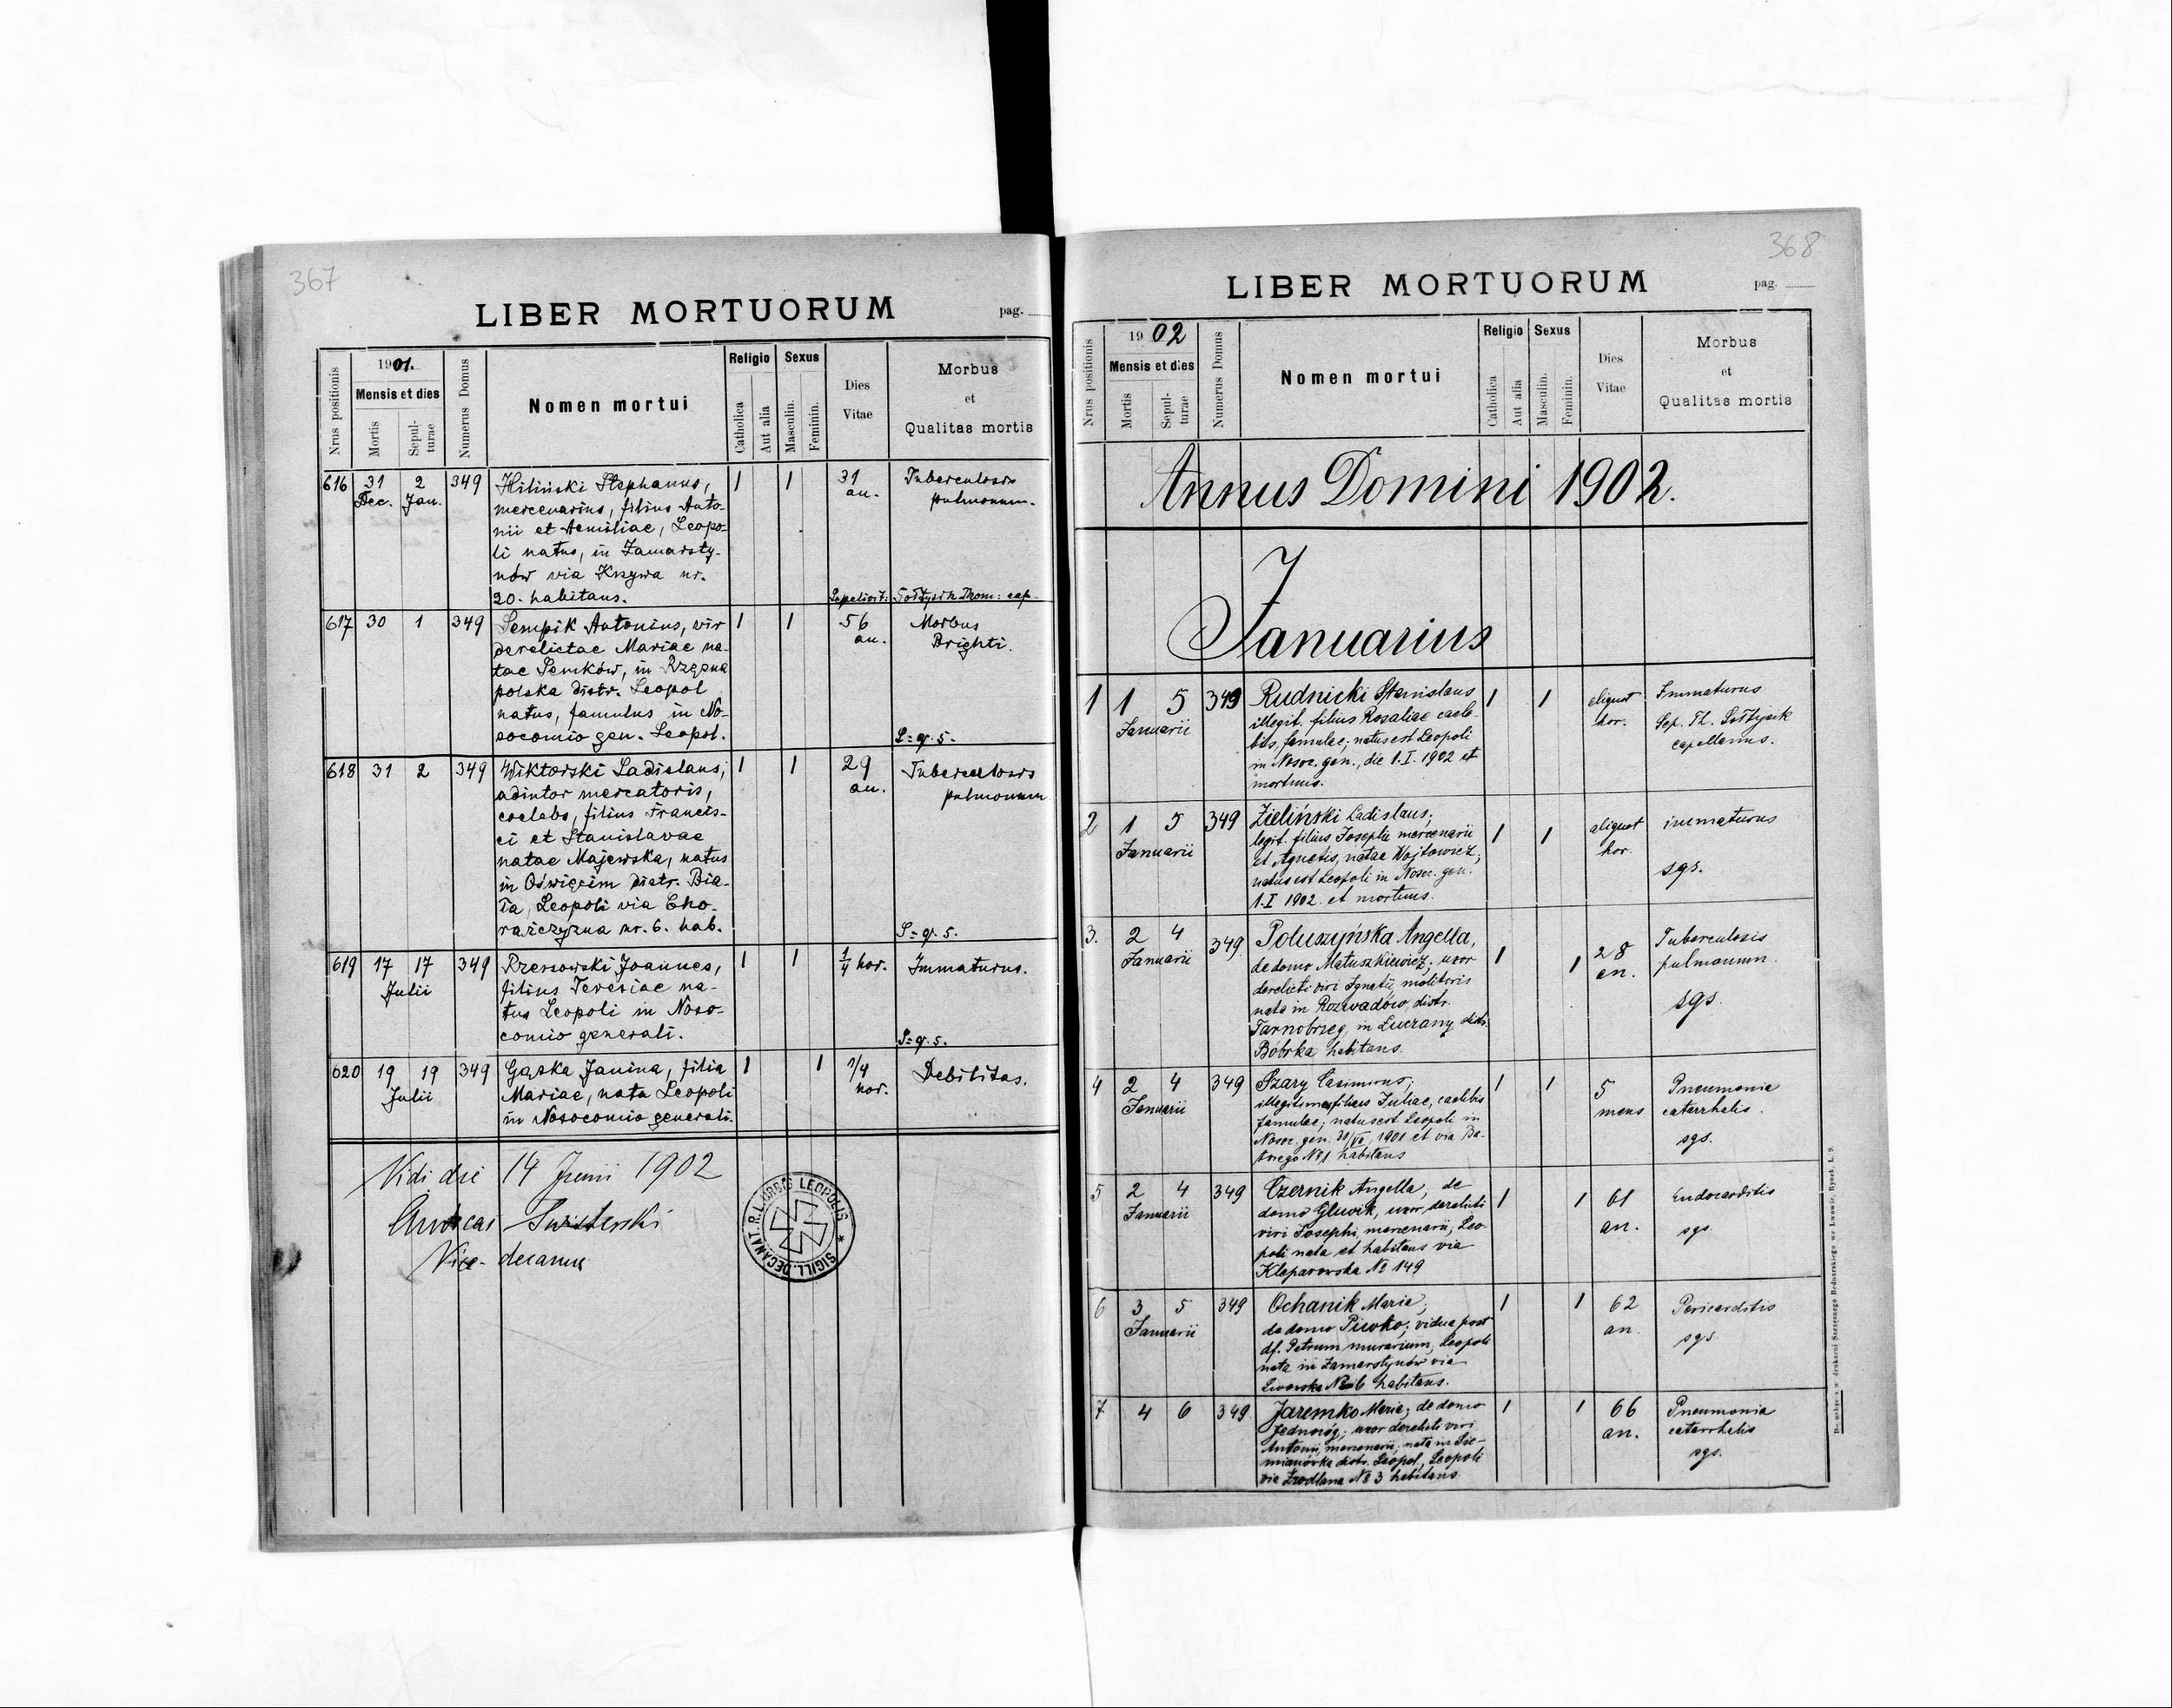 367
LIBER MORTUORUM
pag.
Nrus positionis
1901.
Mensis et dies
Mortis
Sepul-
turae
Numerus Domus
Nomen mortui
Religio
Catholica
Aut alia
Sexus
Masculin.
Feminin.
Dies
Vitae
Morbus
et
Qualitas mortis
616 31 2 349 Hiliński Stephanus, 1 1 31 Tuberculosis
Dec. Jan. mercenarius, filius Anto- an. pulmonum.
nii et Aemiliae, Leopo-
li natus, in Zamarsty-
nów via Krzywa nr.
20. habitans. Sepelivit: Sołtysik Thom: cap.
617 30 1 349 Sempik Antonius, vir 1 1 56 Morbus
derelictae Mariae na- an. Brighti.
tae Semków, in Rzęsna
polska distr. Leopol
natus, famulus in No-
socomio gen. Leopol. S=q.s.
618 31 2 349 Wiktorski Ladislaus, 1 1 29 Tuberculosis
adiutor mercatoris, an. pulmonum
coelebs, filius Francis-
ci et Stanislavae
natae Majewska, natus
in Oświęcim distr. Bia-
ła, Leopoli via Cho-
rążczyzna nr. 6. hab. S=q.s.
619 17 17 349 Rzeszowski Joannes, 1 1 1/4 hor. Immaturus.
Julii filius Teresiae na-
tus Leopoli in Noso-
comio generali. S=q.s.
620 19 19 349 Gąska Janina, filia 1 1 1/4 Debilitas.
Julii Mariae, nata Leopoli hor.
in Nosocomio generali.
Vidi die 14 Junii 1902
Andreas
Vice-decanus
SIGILL. DECANAT. R. L. URBIS LEOPOLIS
368
LIBER MORTUORUM
pag.
Nrus positionis
1902
Mensis et dies
Mortis
Sepul-
turae
Numerus Domus
Nomen mortui
Religio
Catholica
Aut alia
Sexus
Masculin.
Feminin.
Dies
Vitae
Morbus
et
Qualitas mortis
Annus Domini 1902.
Januarius
1 1 5 349 Rudnicki Stanislaus 1 1 aliquot Immaturus
Januarii illegit. filius Rosaliae caele- hor. Sep. Th. Sołtysik
bis, famulae; natus est Leopoli capellanus.
in Nosoc. gen., die 1. I. 1902 et
mortuus.
2 1 5 349 Zieliński Ladislaus; 1 1 aliquot immaturus
Januarii legit. filius Josephi mercenarii hor.
et Agnetis, natae Wojtowicz, sgs.
natus est Leopoli in Nosoc. gen.
1. I 1902 et mortuus.
3. 2 4 349 Poluszyńska Angella, 1 1 28 Tuberculosis
Januarii de domo Matuszkiewicz, uxor an. pulmonum.
derelicti viri Ignatii, molitoris sgs.
nata in Rozwadów, distr.
Tarnobrzeg, in Lucrany distr.
Bóbrka habitans.
4 2 4 349 Szary Casimirus; 1 1 5 Pneumonia
Januarii illegitimus filius Juliae, caelibis mens catarrhalis.
famulae; natus est Leopoli in sgs.
Nosoc. gen. 1901 et via Ba-
torego № 1 habitans
5 2 4 349 Czernik Angella, de 1 1 61 Endocarditis
Januarii domo Gluwik, uxor derelicti an. sgs.
viri Josephi, mercenarii, Leo-
poli nata et habitans via
Kleparowska № 149
6 3 5 349 Ochanik Maria; 1 1 62 Pericarditis
Januarii de domo Piwko; vidua post an. sgs.
df. Petrum murarium, Leopoli
nata in Zamarstynów via
Lwowska № 6 habitans.
7 4 6 349 Jaremko Maria; de domo 1 1 66 Pneumonia
Jednoróg; uxor derelicti viri an. catarrhalis
Antonii, mercenarii; nata in Sie- sgs.
mianówka distr. Leopol, Leopoli
via Źródlana № 3 habitans